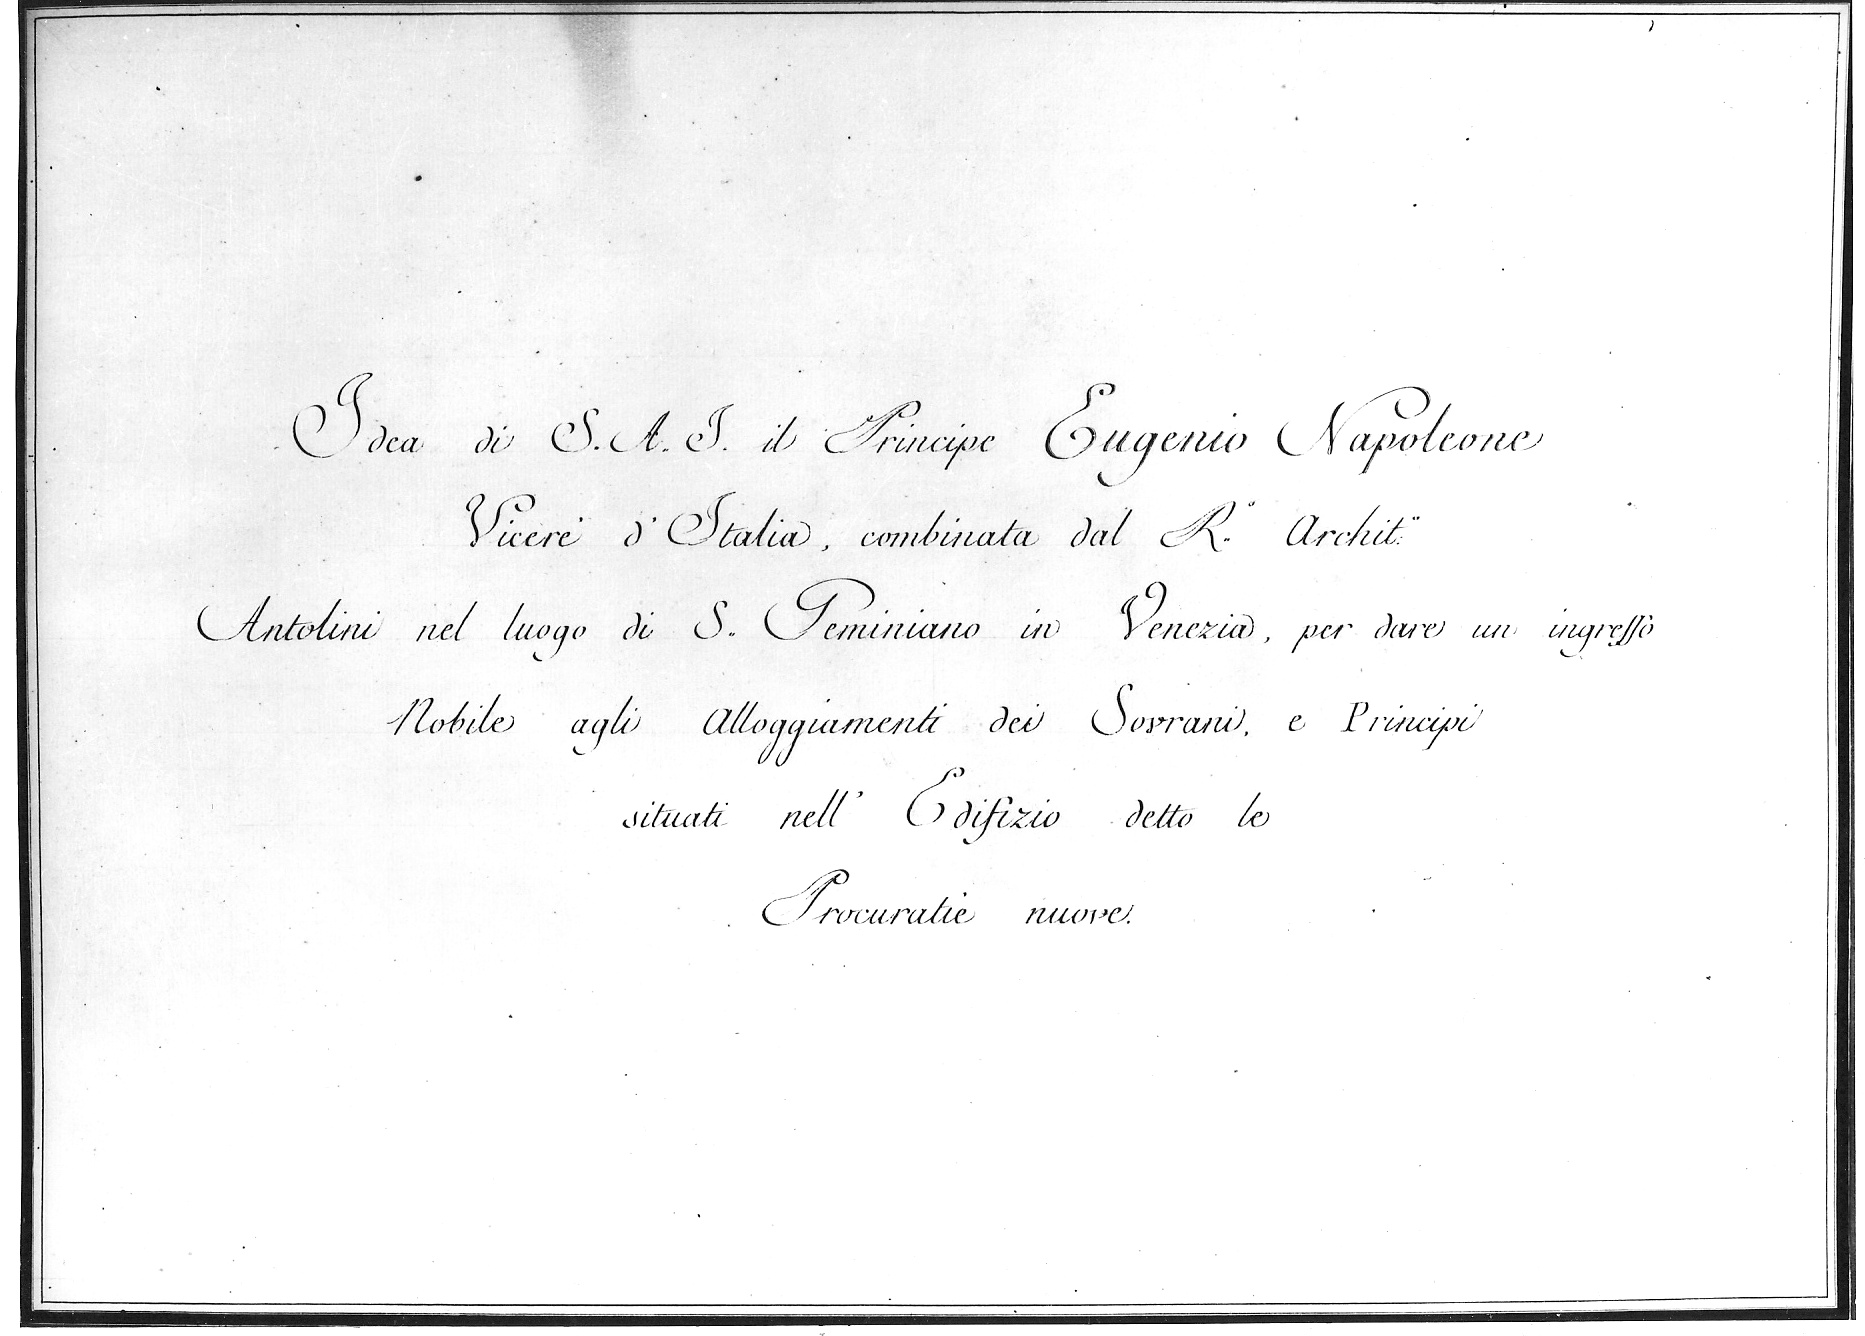 Idea di S. A. I. il Principe Eugenio Napoleone
Viceré d'Italia, combinata dal R.° Archit.°
Antolini nel luogo di S. Geminiano in Venezia, per dare un ingresso
Nobile agli Alloggiamenti dei Sovrani, e Principi
situati nell' Edifizio detto le
Procuratie nuove.